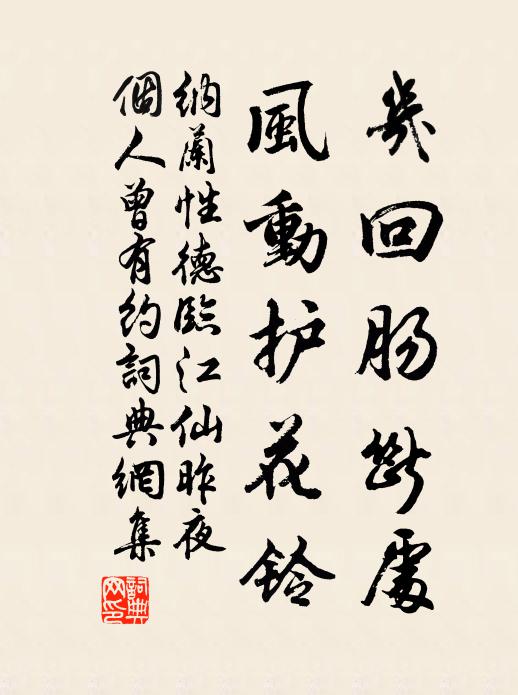 幾回肠斷處
風動护花鈴
納蘭性德臨江仙昨夜
個人曾有约詞典網集
詞典網印